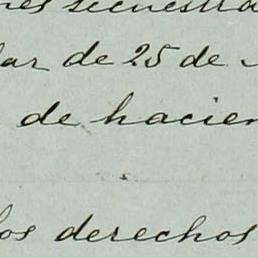 nes secuestra
lar de 25 de
de hacien
los derechos